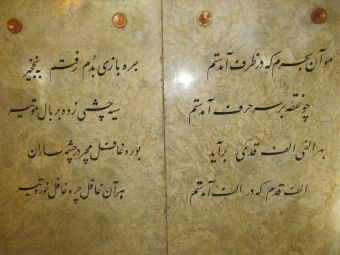 مو آن بحرم که در ظرف آمدستم
چو نقطه بر سر حرف آمدستم
بهر الفی الف قدی برآید
الف قدم که در الف آمدستم
جره بازی بدم رفتم به نخجیر
سیه چشمی زده بر بال مو تیر
بوره غافل مچر در چشمه ساران
هر آن غافل چره غافل خوره تیر